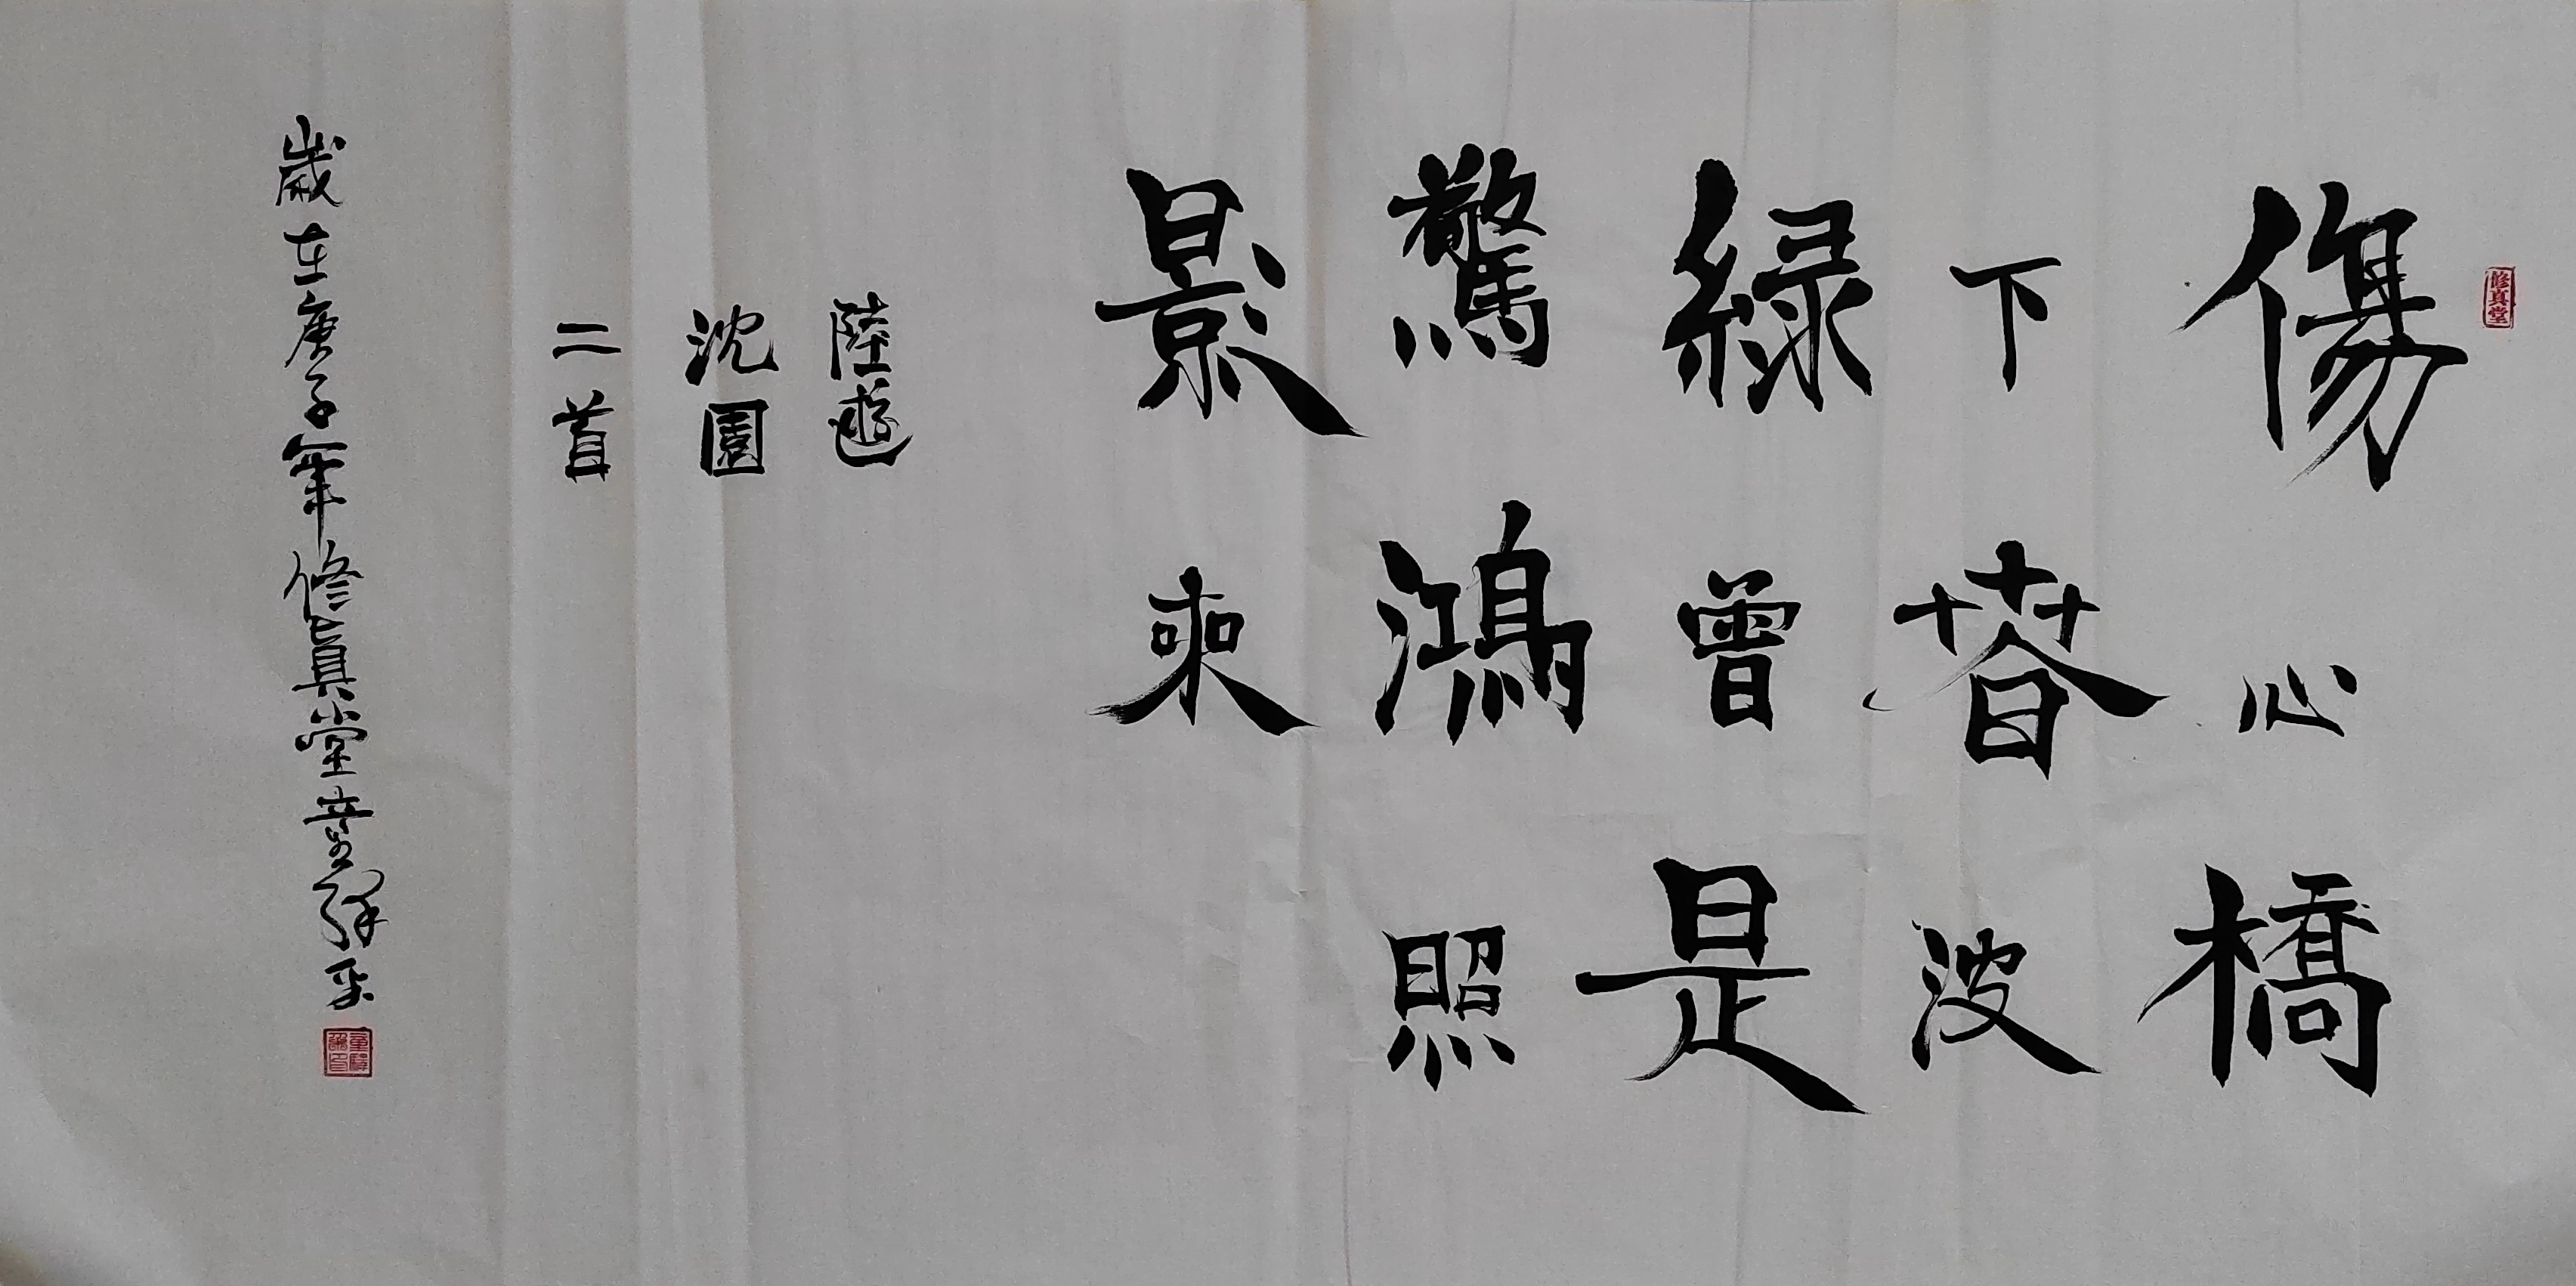 修真堂
傷心橋
下春波
綠曾是
驚鴻照
影來
陸遊
沈園
二首
歲在庚子年修真堂童